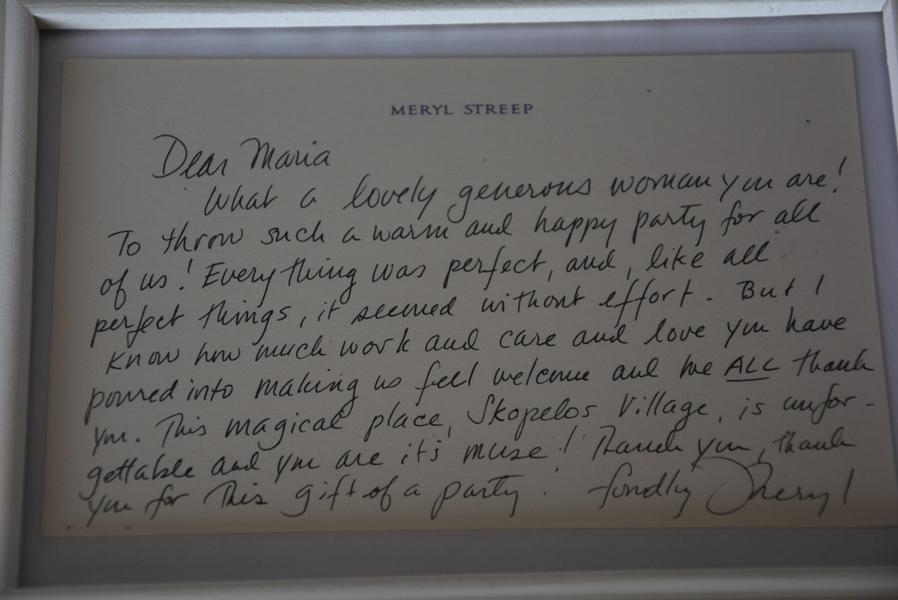 MERYL STREEP
Dear Maria
What a lovely generous woman you are!
To throw such a warm and happy party for all
of us! Everything was perfect, and, like all
perfect things, it seemed without effort. But I
know how much work and care and love you have
poured into making us feel welcome and we ALL thank
you. This magical place, Skopelos Village, is unfor-
gettable and you are it's muse! Thank you, thank
you for this gift of a party. fondly Meryl